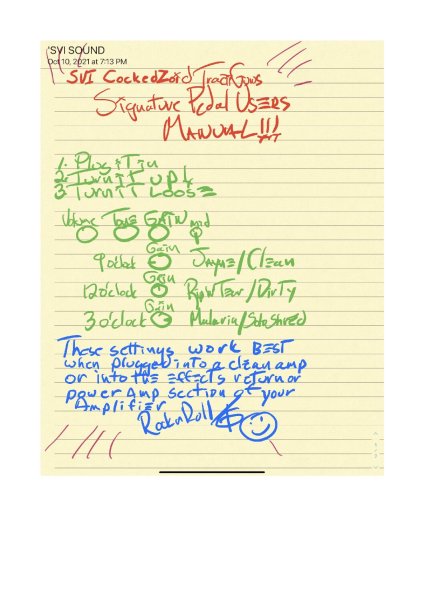 'SVI SOUND
Oct 10, 2021 at 7:13 PM
SVI CockedZoid TracII Guns
Signature Pedal USERS
MANUAL!!!
1. Plug iT in
2. Turn iT up!
3. Turn iT LOOSE
Volume Tone GAIN mid
Gain
9 o'clock Jayne/Clean
Gain
12 o'clock Rip N Tear/Dirty
Gain
3 o'clock Malaria/Solo Shred
These settings work BEST
when plugged into a clean amp
or into the Effects return or
power Amp section of your
Amplifier
Rock n Roll